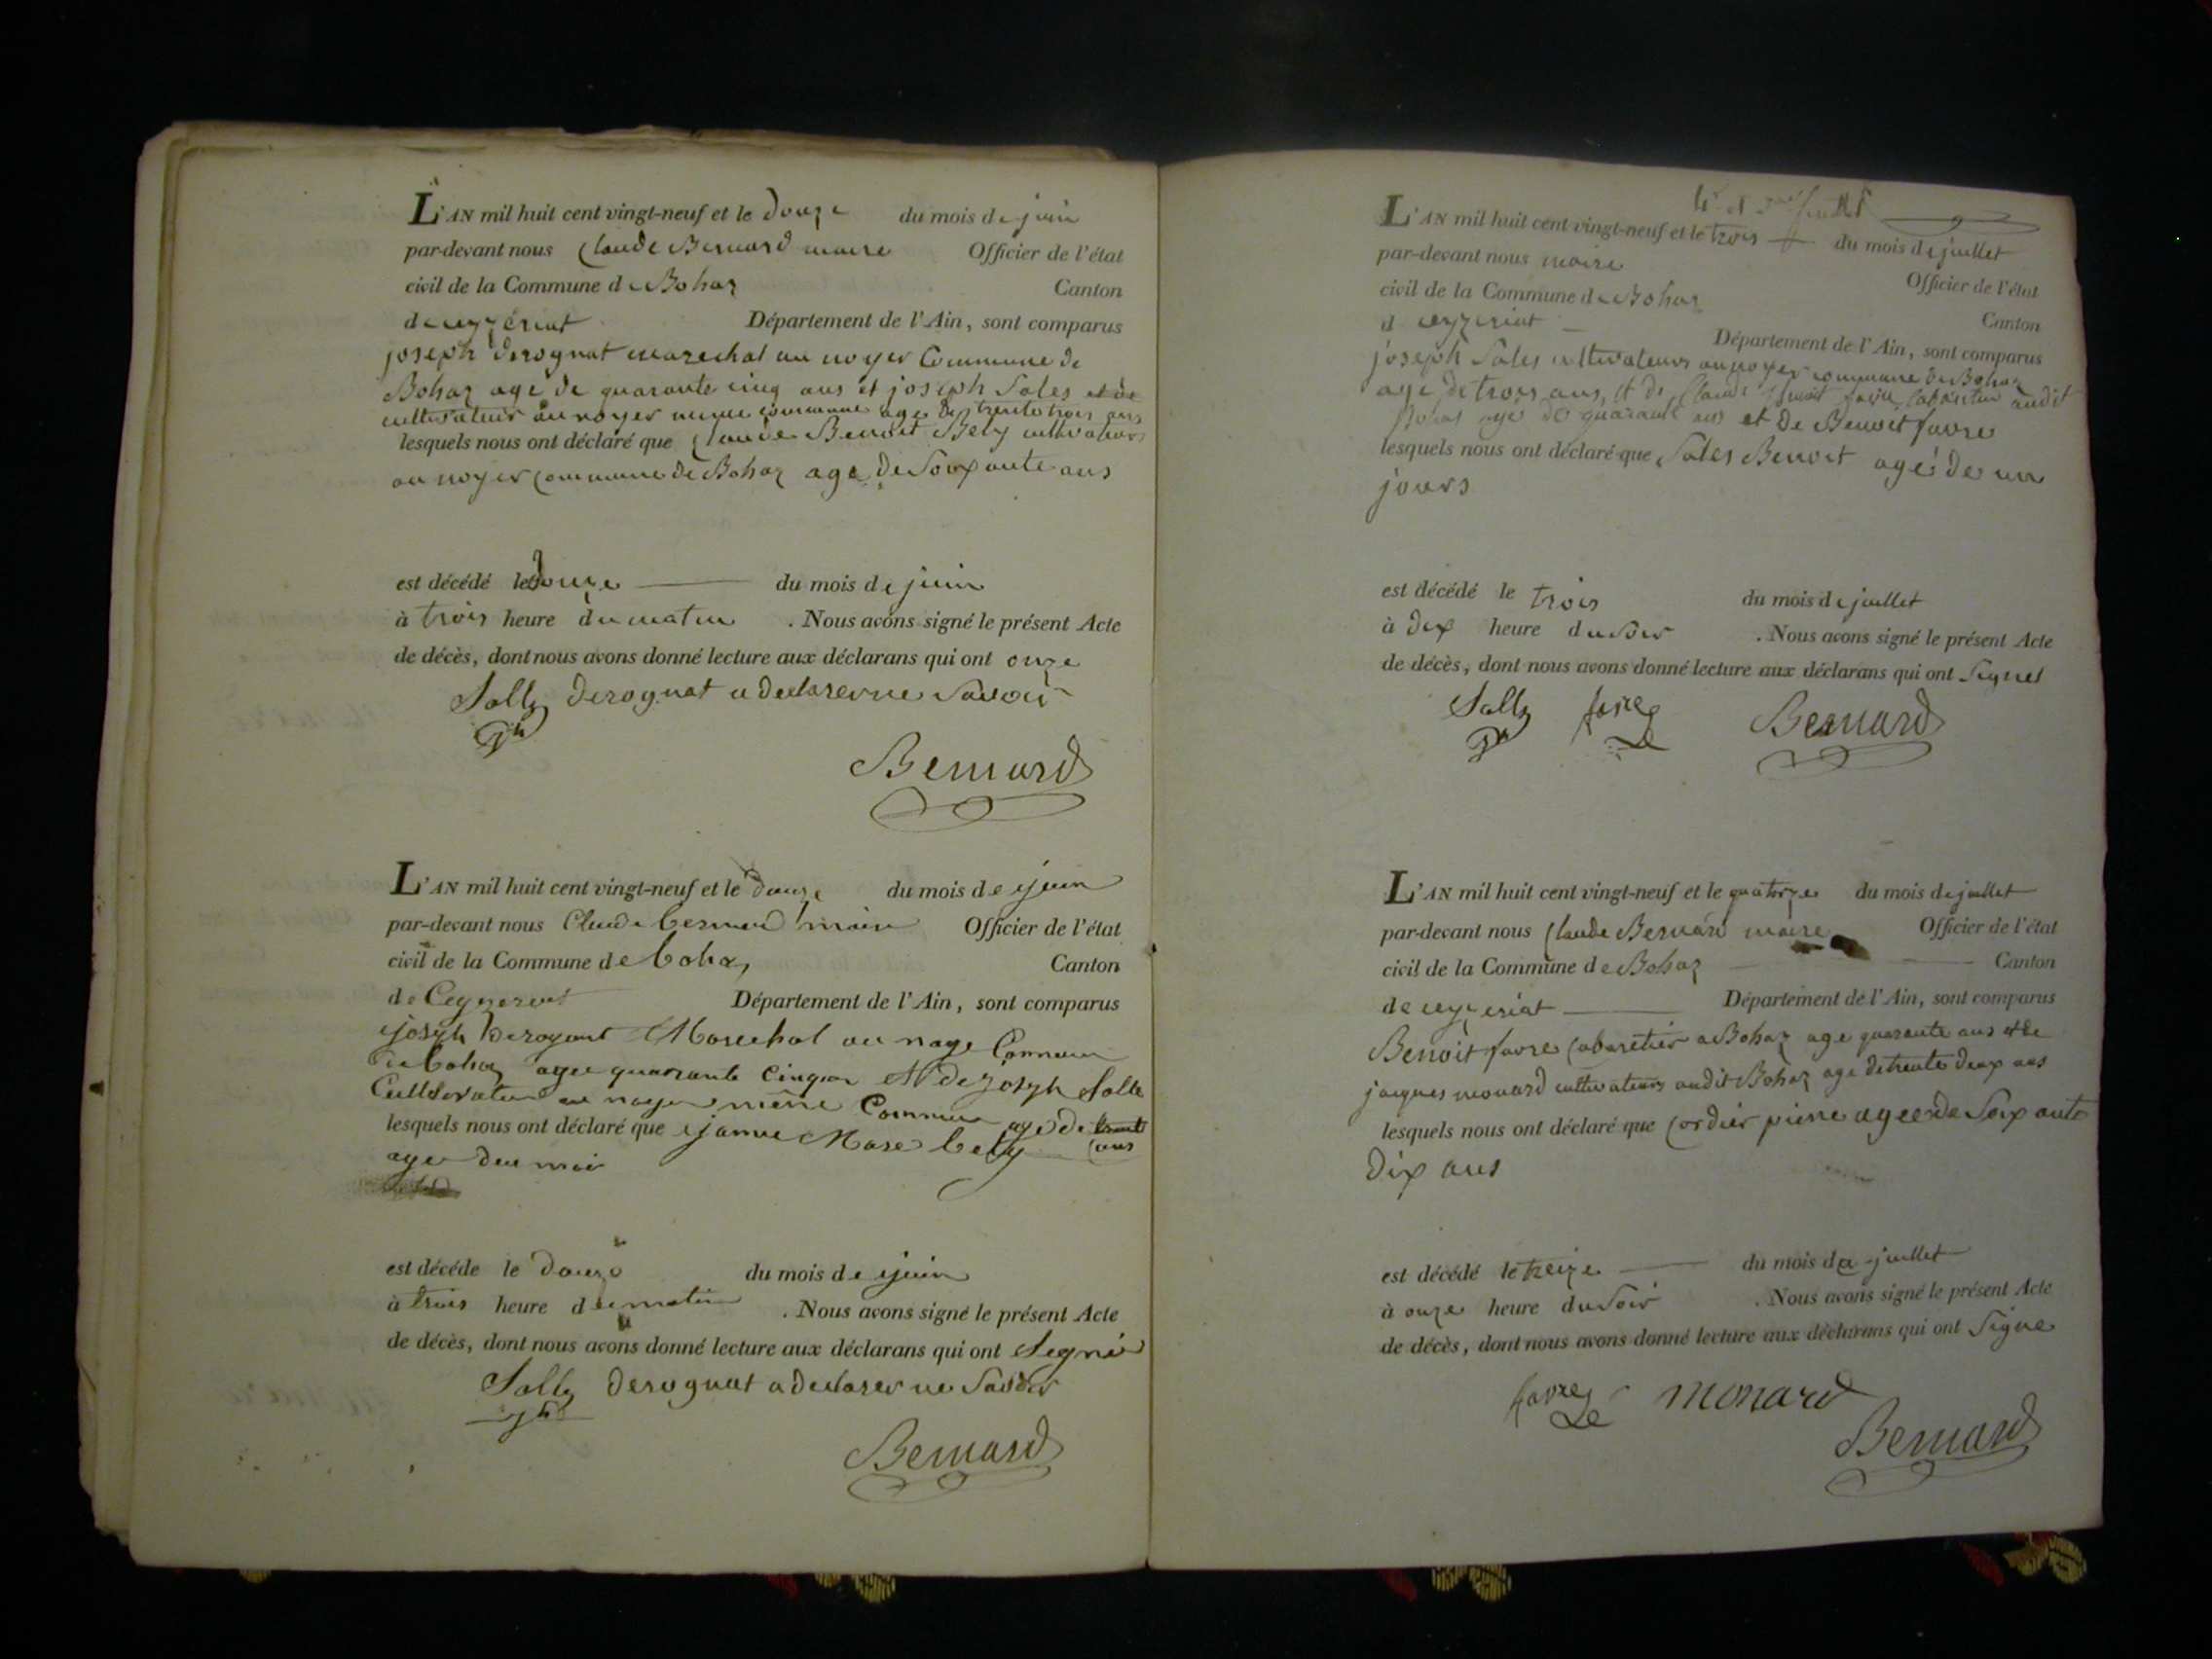 L'AN mil huit cent vingt-neuf et le douze du mois de juin
par-devant nous Claude Bernard maire Officier de l'état
civil de la Commune de Bohaz Canton
de ceyzériat Département de l'Ain, sont comparus
joseph derognat marechal au noyer Commune de
Bohaz agé de quarante cinq ans et joseph Sales et de
cultivateur au noyer meme commune age de trente trois ans
lesquels nous ont déclaré que Claude Benoit Bely cultivateur
au noyer Commune de Bohaz age de Soixante ans
est décédé le douze du mois de juin
à trois heure du matin . Nous avons signé le présent Acte
de décès, dont nous avons donné lecture aux déclarans qui ont
Sally derognat a declarer ne Savoir
Bernard
L'AN mil huit cent vingt-neuf et le douze du mois de juin
par-devant nous Claude bernard maire Officier de l'état
civil de la Commune de bohaz Canton
de Ceyzeriat Département de l'Ain, sont comparus
joseph derognat Marechal au noye Commune
de bohaz agee quarante Cinq an et de Joseph Salle
Culltivateur au noyer même Commune age de trante
lesquels nous ont déclaré que Mare bely ans
age de mois
est décéde le douze du mois de juin
à trois heure du matin . Nous avons signé le présent Acte
de décès, dont nous avons donné lecture aux déclarans qui ont Segné
Sally derognat a declarer ne Savoir
Bernard
L'AN mil huit cent vingt-neuf et le trois du mois de juillet
par-devant nous maire Officier de l'état
civil de la Commune de Bohaz Canton
d ceyzeriat Département de l'Ain, sont comparus
joseph Sales cultivateurs au noyer commune de Bohaz
age de trois ans, et de Claude audit
Bohas age de quarante ans et de Benoit favre
lesquels nous ont déclaré que Sales Benoit agé de un
jours
est décédé le trois du mois de juillet
à dix heure du Soir . Nous avons signé le présent Acte
de décès, dont nous avons donné lecture aux déclarans qui ont Signet
Sally favre Bernard
L'AN mil huit cent vingt-neuf et le quatorze du mois de juillet
par-devant nous Claude Bernard maire Officier de l'état
civil de la Commune de Bohaz Canton
de ceyzeriat Département de l'Ain, sont comparus
Benoit favre Cabaretier a Bohaz age quarante ans et de
jacques monard cultivateurs audit Bohaz age de trente deux ans
lesquels nous ont déclaré que Cordier pierre agee de Soixante
dix ans
est décédé le treize du mois de juillet
à onze heure du Soir . Nous avons signé le présent Acte
de décès, dont nous avons donné lecture aux déclarans qui ont Signe
favre monard
Bernard